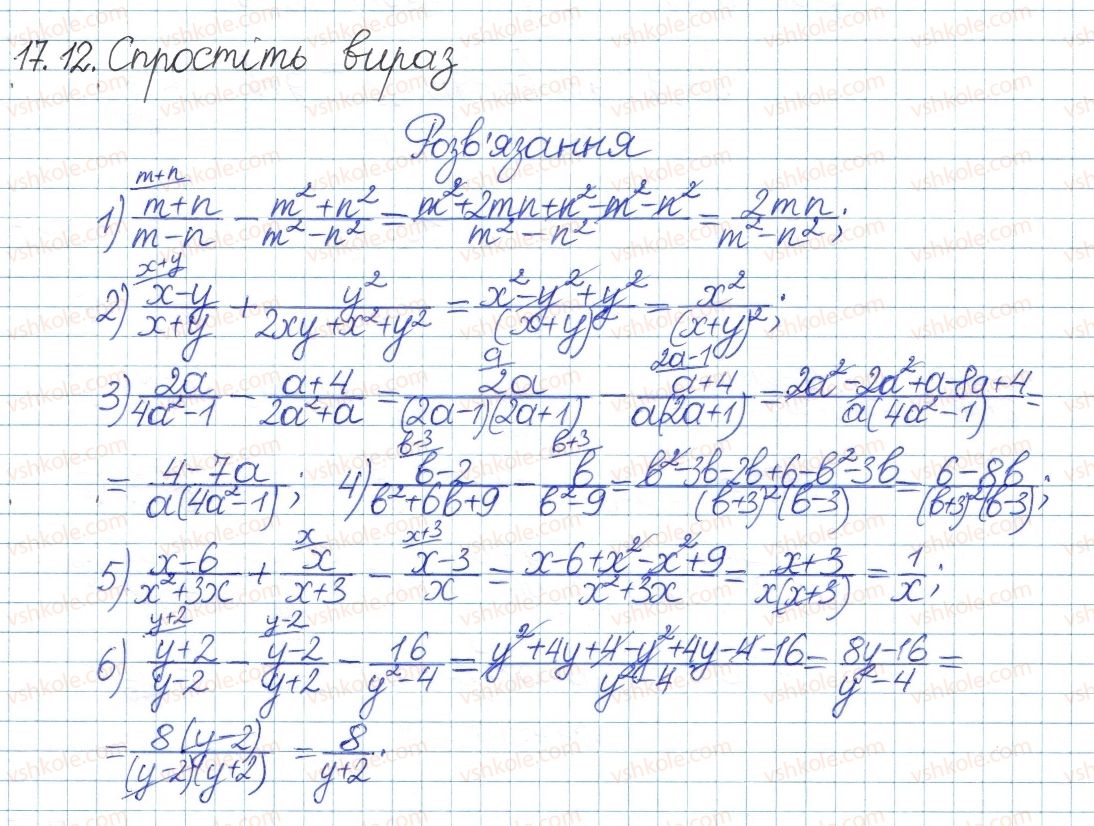 17.12. Спростіть вираз
Розв'язання
1) (m+n)/(m-n) [m+n] - (m²+n²)/(m²-n²) = (m²+2mn+n²-m²-n²)/(m²-n²) = 2mn/(m²-n²);
2) (x-y)/(x+y) [x+y] + y²/(2xy+x²+y²) = (x²-y²+y²)/(x+y)² = x²/(x+y)²;
3) 2a/(4a²-1) - (a+4)/(2a²+a) = 2a/((2a-1)(2a+1)) [a] - (a+4)/(a(2a+1)) [2a-1] = (2a²-2a²+a-8a+4)/(a(4a²-1)) =
= (4-7a)/(a(4a²-1)); 4) (b-2)/(b²+6b+9) [b-3] - b/(b²-9) [b+3] = (b²-3b-2b+6-b²-3b)/((b+3)²(b-3)) = (6-8b)/((b+3)²(b-3));
5) (x-6)/(x²+3x) + x/(x+3) [x] - (x-3)/x [x+3] = (x-6+x²-x²+9)/(x²+3x) = (x+3)/(x(x+3)) = 1/x;
6) (y+2)/(y-2) [y+2] - (y-2)/(y+2) [y-2] - 16/(y²-4) = (y²+4y+4-y²+4y-4-16)/(y²-4) = (8y-16)/(y²-4) =
= 8(y-2)/((y-2)(y+2)) = 8/(y+2).
vshkole.com